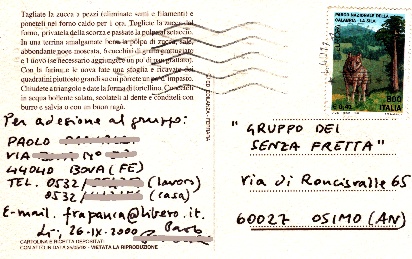 Tagliate la zucca a pezzi (eliminate semi e filamenti e
poneteli nel forno caldo per 1 ora. Togliete la zucca dal
forno, privatela delle scorze e passate la polpa al setaccio.
In una terrina amalgamate bene la polpa di zucca, sale,
abbondante noce moscata, 6 cucchiai di grana grattugiato
e 1 uovo (se necessario aggiungete un po' di pan grattato).
Con la farina e le uova fate una sfoglia e ricavate dei
quadratini piuttosto grandi su cui porrete un po' d'impasto.
Chiudete a triangolo e date la forma di tortellino. Cuoceteli
in acqua bollente salata, scolateli al dente e conditeli con
burro e salvia o con un buon ragù.
PARCO NAZIONALE DELLA
CALABRIA - LA SILA
800
ITALIA
Per adesione al gruppo:
PAOLO
VIA N°
44040 BOVA (FE)
TEL. 0532/ (lavoro)
0532/ (casa)
E-mail. frapanca@libero.it.
lì, 26-IX-2000
CARTOLINA E RICETTA DEPOSITATE
VIETATA LA RIPRODUZIONE
"GRUPPO DEI
SENZA FRETTA"
Via di Roncisvalle 65
60027 OSIMO (AN)